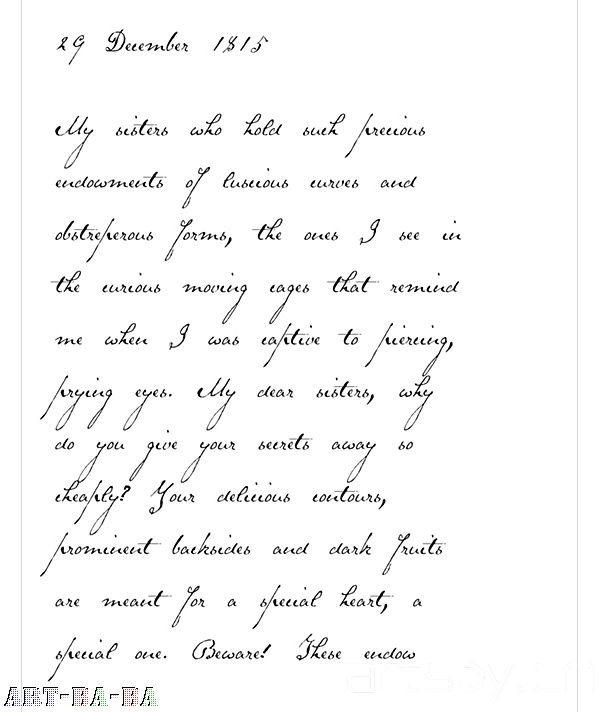 29 December 1815
My sisters who hold such precious
endowments of luscious curves and
obstreperous forms, the ones I see in
the curious moving cages that remind
me when I was captive to piercing,
prying eyes. My dear sisters, why
do you give your secrets away so
cheaply? Your delicious contours,
prominent backsides and dark fruits
are meant for a special heart, a
special one. Beware! These endow
ART-BA-BA